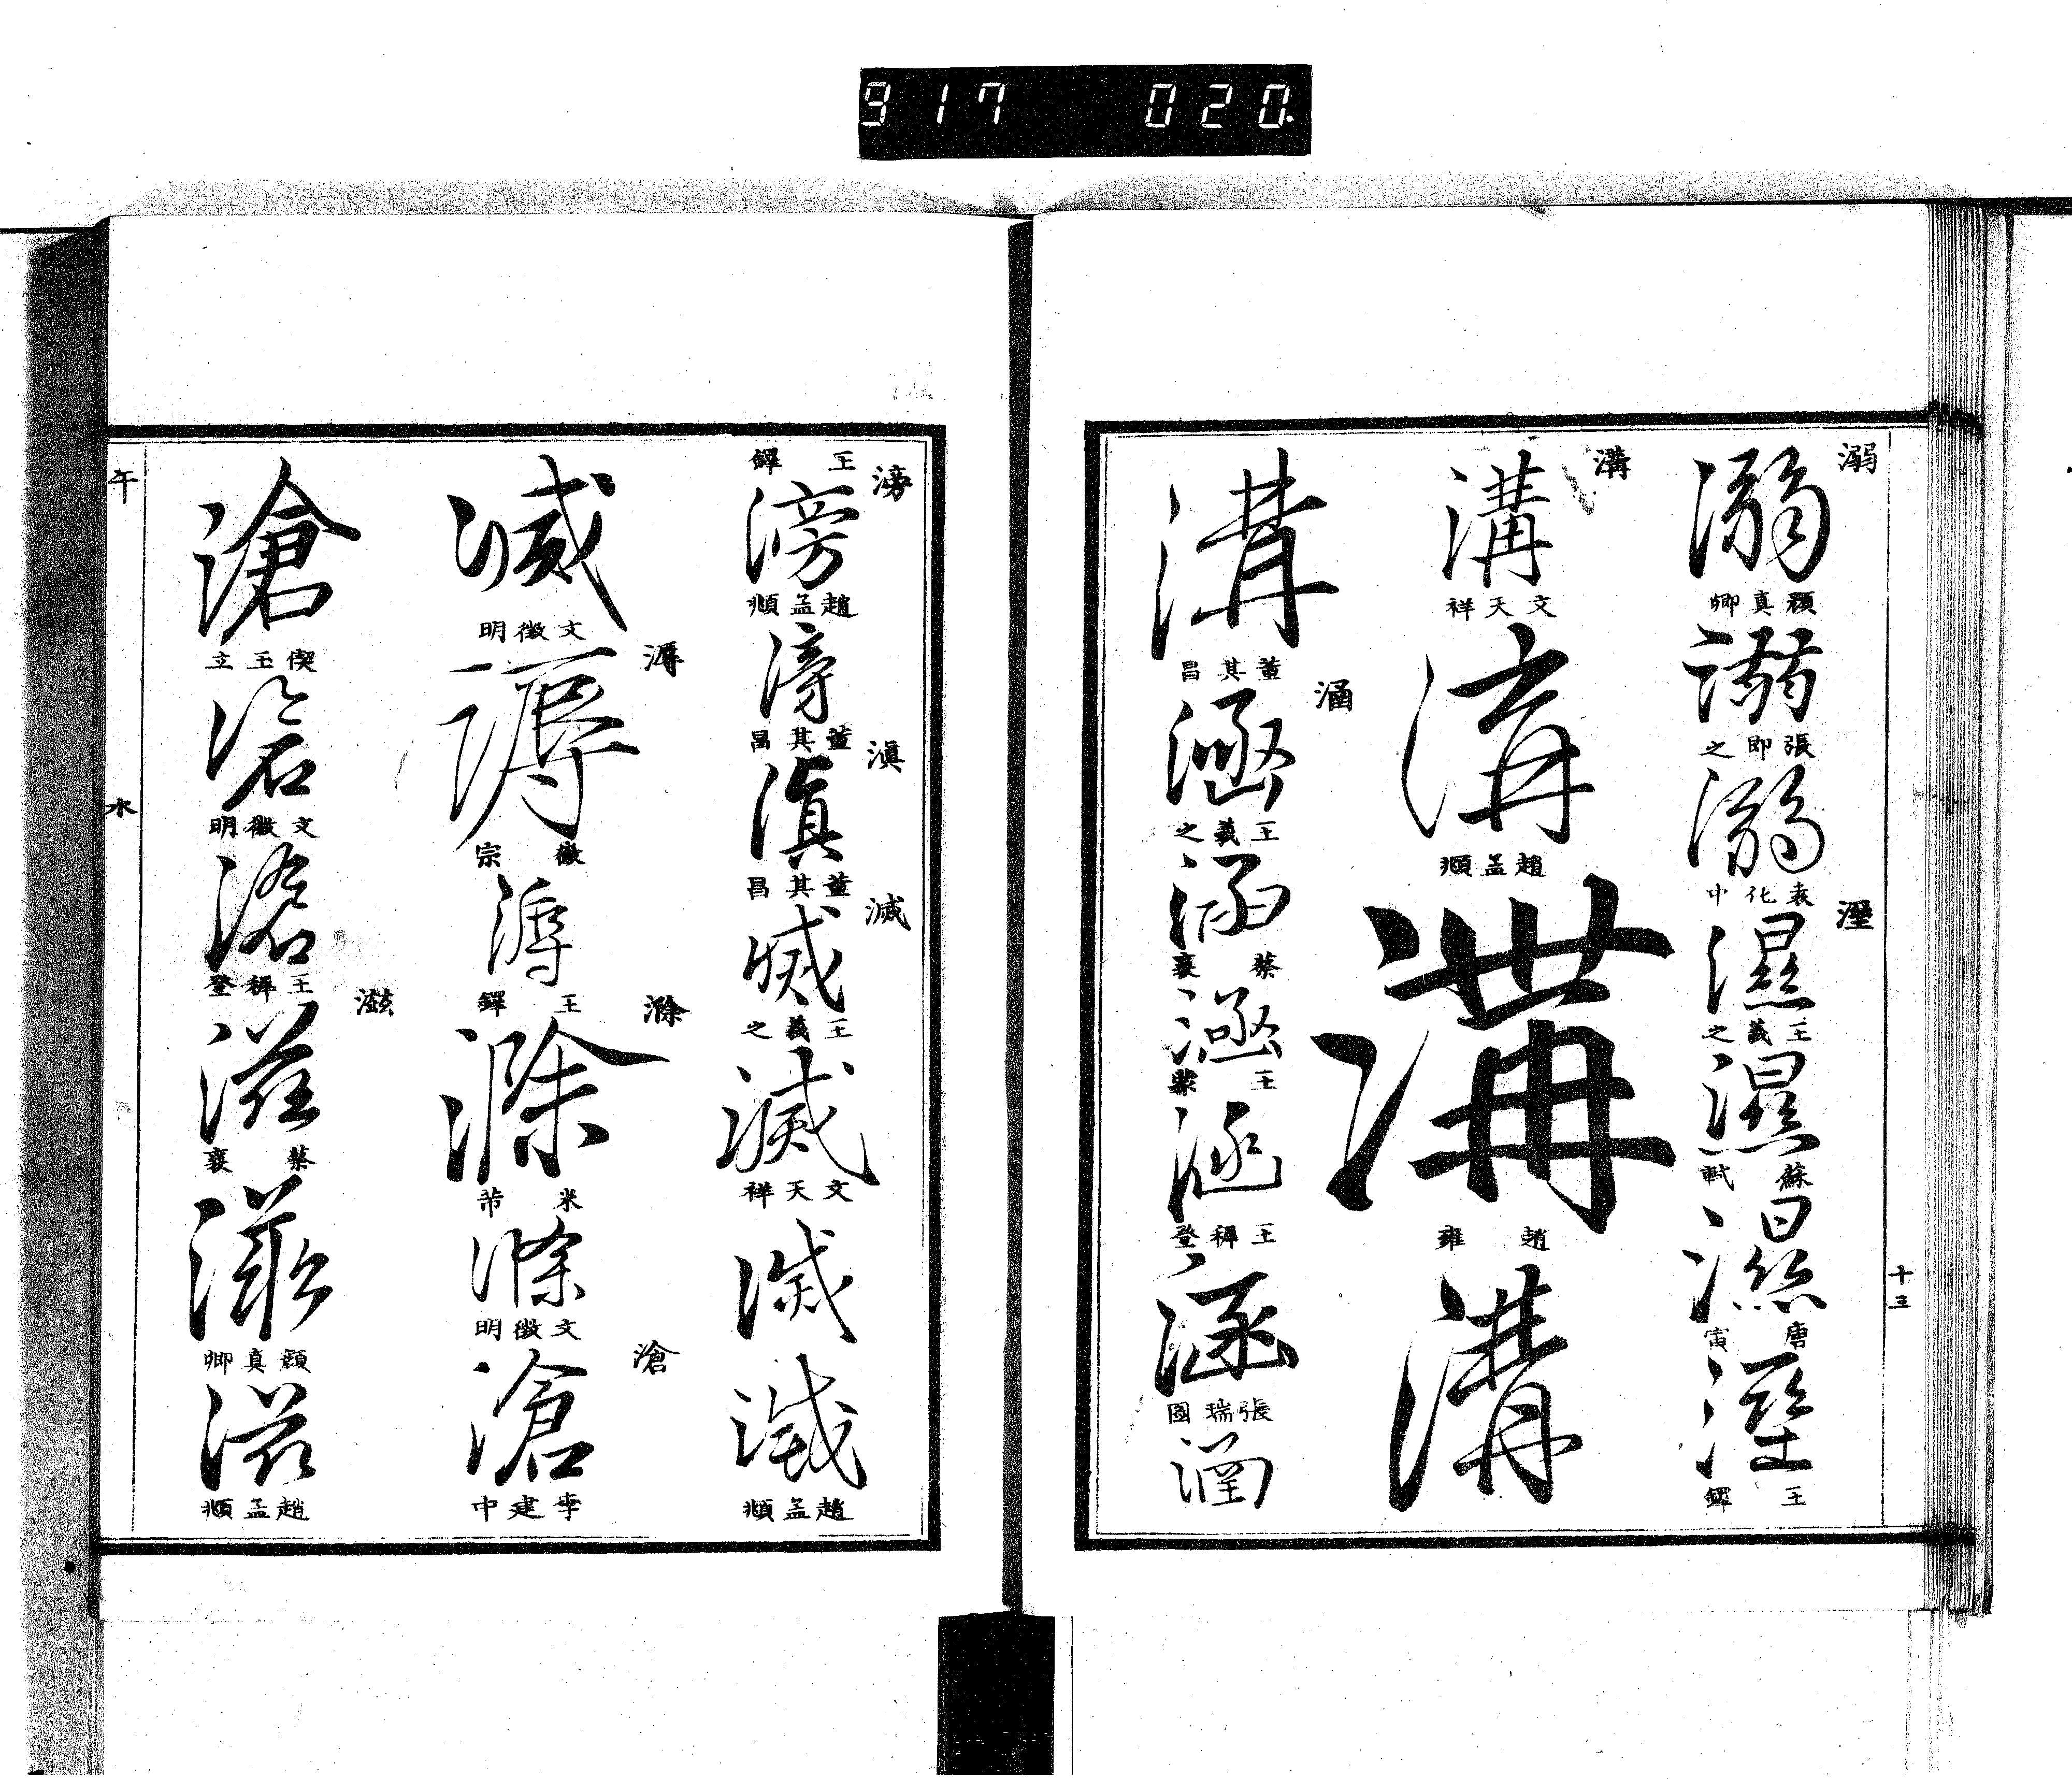 917 020
溺
溺
顏真卿
溺
張即之
溺
袁化中
溼
濕
王羲之
濕
蘇軾
濕
唐寅
溼
王鐸
溝
溝
文天祥
溝
趙孟頫
溝
趙雍
溝
溝
董其昌
涵
涵
王羲之
涵
蔡襄
涵
王蒙
涵
王穉登
涵
張瑞圖
涵
十三
王鐸
滂
滂
趙孟頫
滂
董其昌
滇
滇
董其昌
滅
滅
王羲之
滅
文天祥
滅
滅
趙孟頫
滅
文徵明
溽
溽
徽宗
溽
王鐸
滁
滁
米芾
滁
文徵明
滄
滄
李建中
滄
偰玉立
滄
文徵明
滄
王穉登
滋
滋
蔡襄
滋
顏真卿
滋
趙孟頫
午
水